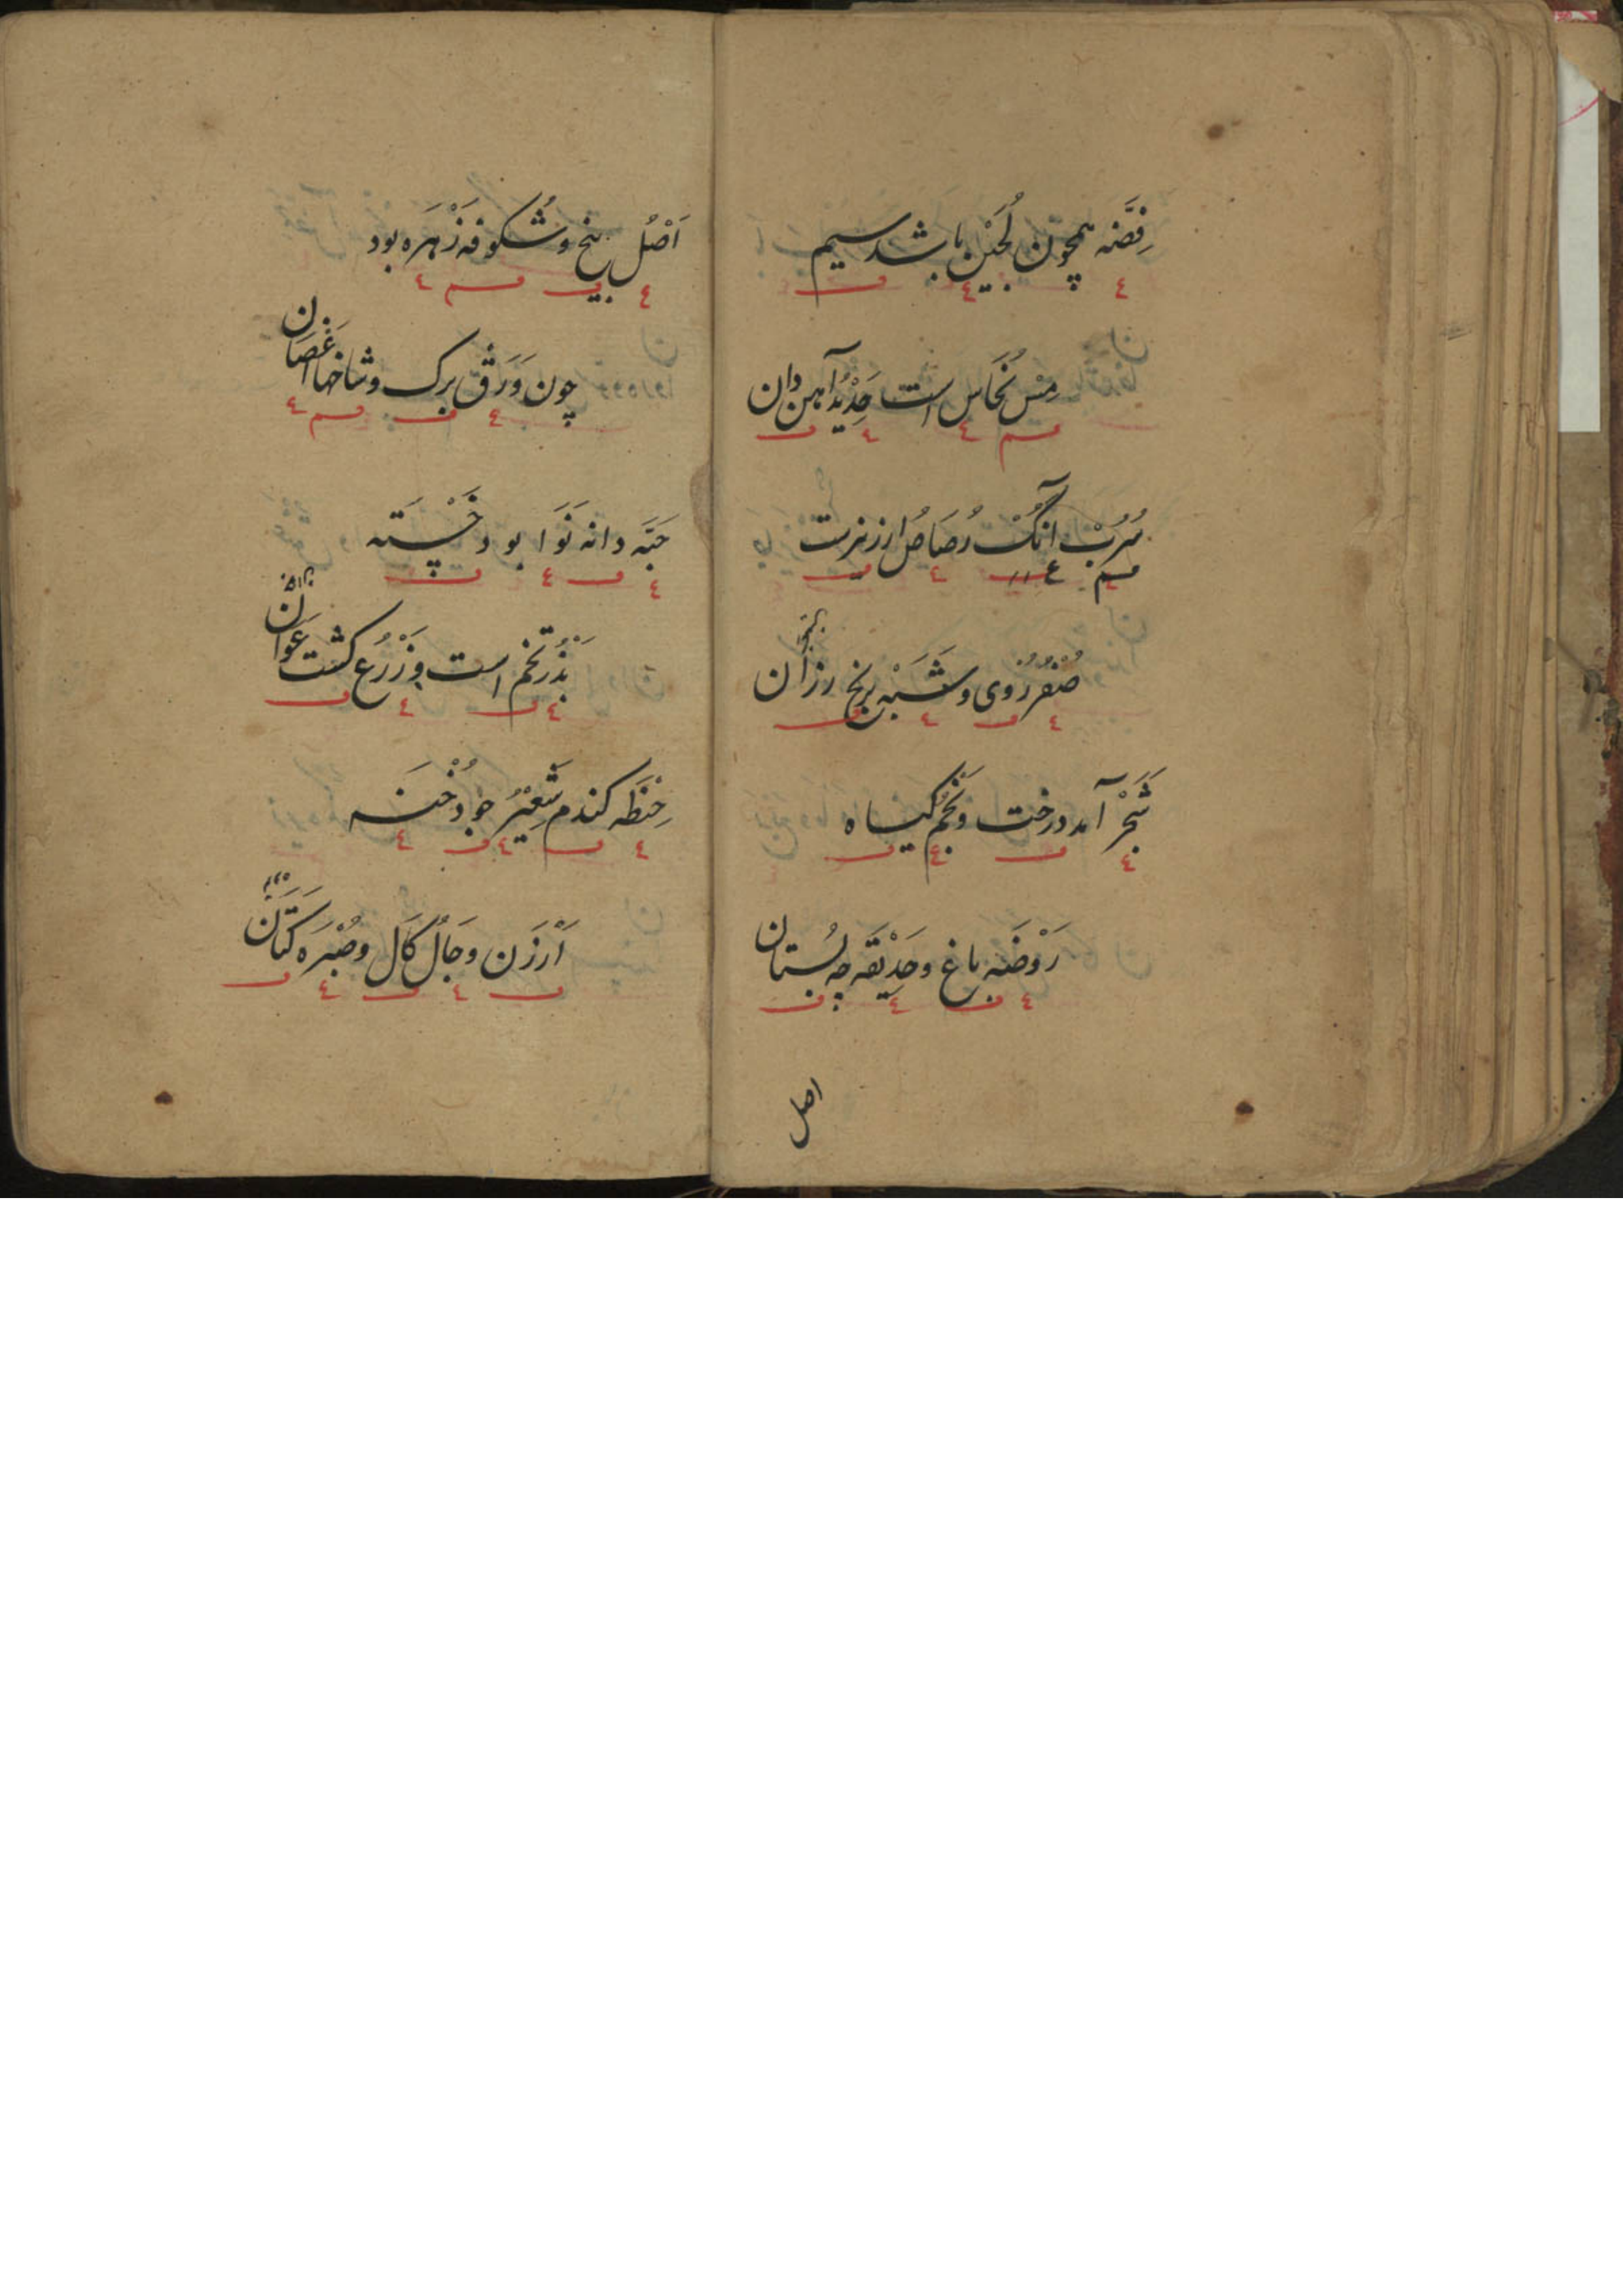 فِضَّه همچون لُجَیْن باشد سیم
مِس نُحَاس است حَدِیْد آهن دان
سُرُبْ آنُکْ رُصَاصُ ارزیزست
صُفْر رُوی و شَبَهْ برنج رزان
شَجَرْ آمد درخت و نَجْم کیاه
رَوْضَه باغ و حَدِیْقَه چه بُستان
اصل
اَصْل بیخ و شُکوفه زَهْرَه بود
چون وَرَق برک و شاخها اغصَان
حَبَّه دانه نَوَا بود خَسْتَه
بَذْر تخم است و زَرْع کشت عَوَان
حِنْطَه کندم شَعِیْر جو دُخْنَه
اَرْزَن و جَال کَال و صُبْرَه کَتَان